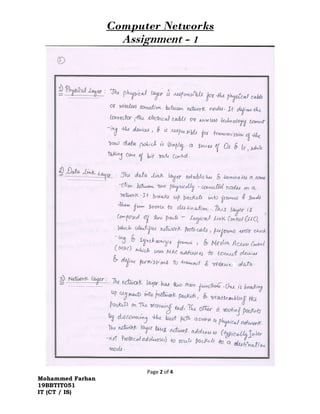 Computer Networks
Assignment - 1
1) Physical Layer : The physical layer is responsible for the physical cable
or wireless connection between network nodes. It defines the
connector, the electrical cable or wireless technology connect
-ing the devices, & is responsible for transmission of the
raw data, which is simply a series of 0s & 1s, while
taking care of bit rate control.
2) Data Link Layer : The data link layer establishes & terminates a conne
-ction between two physically-connected nodes on a
network. It breaks up packets into frames & sends
them from source to destination. This layer is
composed of two parts - Logical Link Control (LLC),
which identifies network protocols, performs error check
-ing & synchronizes frames, & Media Access Control
(MAC) which uses MAC addresses to connect devices
& define permissions to transmit & receive data.
3) Network Layer : The network layer has two main functions. One is breaking
up segments into network packets, & reassembling the
packets on the receiving end. The other is routing packets
by discovering the best path across a physical network.
The network layer uses network addresses (typically Inter
-net Protocol addresses) to route packets to a destination
node.
Page 2 of 4
Mohammed Farhan
19BBTIT051
IT (CT / IS)